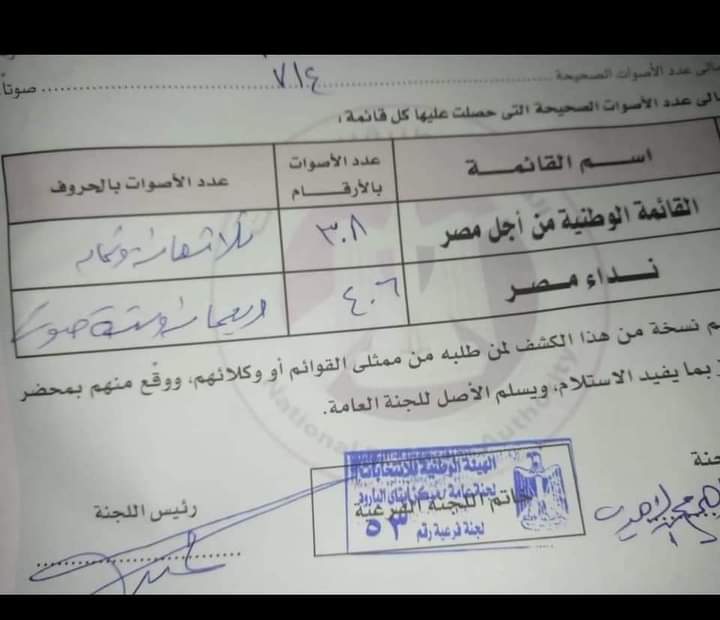 ـالى عدد الأصوات الصحيحة ........ ٧١٤ ........ صوتاً
ـالى عدد الأصوات الصحيحة التى حصلت عليها كل قائمة :
اسم القائمة عدد الأصوات بالأرقام عدد الأصوات بالحروف
القائمة الوطنية من أجل مصر ٣٠٨ ثلاثمائة وثمانية
نداء مصر ٤٠٦ اربعمائة وستة صوت
ـم نسخة من هذا الكشف لمن طلبه من ممثلى القوائم أو وكلائهم، ووقّع منهم بمحضر
بما يفيد الاستلام، ويسلم الأصل للجنة العامة.
ـجنة
رئيس اللجنة
خاتم اللجنة الفرعية
الهيئة الوطنية للانتخابات
لجنة عامة مركز إيتاى البارود
لجنة فرعية رقم ٥٣
National Authority